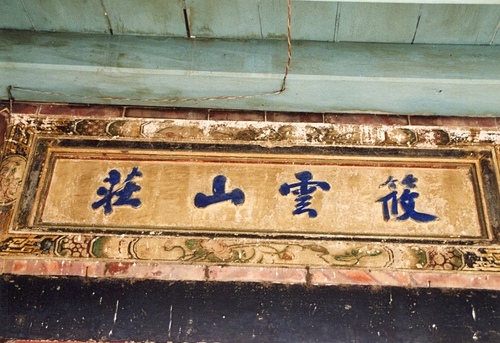 筱雲山莊